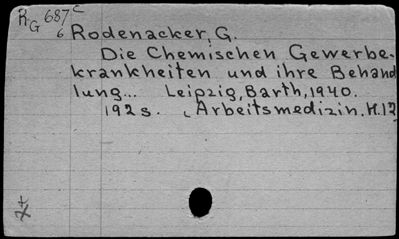 R 687 c
G 6
Rodenacker, G.
Die Chemischen Gewerbe-
krankheiten und ihre Behand
lung... Leipzig, Barth, 1940.
192 s. (Arbeitsmedizin. H.12